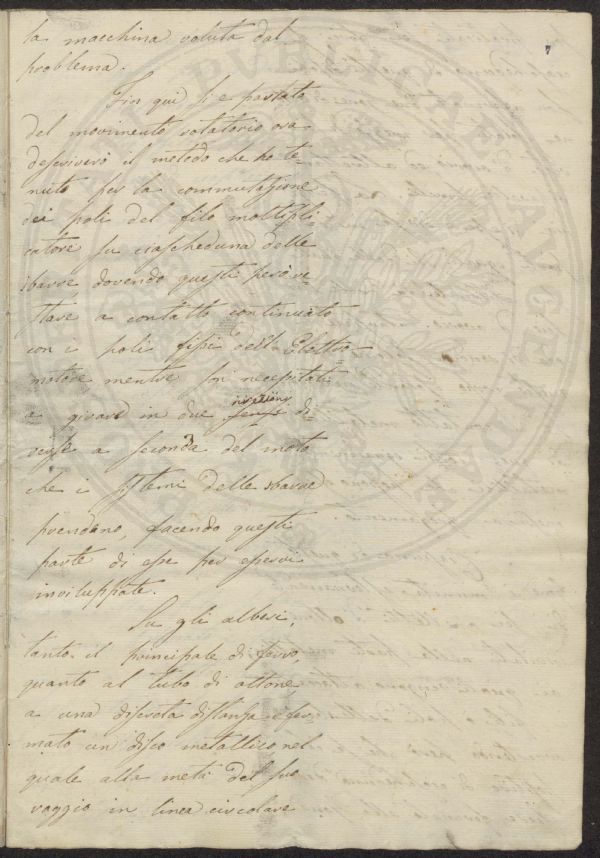 7
la macchina voluta dal
problema.
Fin qui si è parlato
del movimento rotatorio ora
descriverò il metodo che ho te-
nuto per la commutazione
dei poli del filo moltipli
catore su ciascheduna delle
sbarre dovendo questi però re-
stare a contatto continuato
con i poli fissi dell' Elettro-
motore mentre son necessitati
a girare in due direzioni di-
verse a seconda del moto
che i sistemi delle sbarre
prendano, facendo questi
parte di esse per esservi
inviluppate.
Su gli alberi,
tanto il principale di ferro,
quanto al tubo di ottone
a una discreta distanza è fer
mato un disco metallico, nel
quale alla metà del suo
raggio in linea circolare